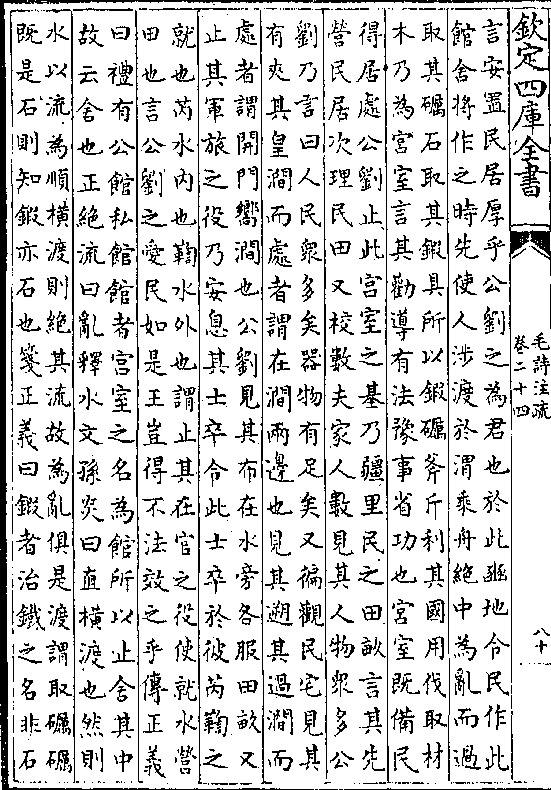 欽定四庫全書
毛詩注疏
卷二十四
八十
言安置民居厚乎公劉之為君也於此豳地令民作此
館舍將作之時先使人渉渡於渭乘舟絶中為亂而過
取其礪石取其鍜具所以鍜礪斧斤利其國用伐取材
木乃為宮室言其勸導有法豫事省功也宮室既備民
得居處公劉止此宮室之基乃疆里民之田畝言其先
營民居次理民田又校數夫家人數見其人物衆多公
劉乃言曰人民衆多矣器物有足矣又徧觀民宅見其
有夾其皇澗而處者謂在澗兩邊也見其遡其過澗而
處者謂開門嚮澗也公劉見其布在水旁各服田畝又
止其軍旅之役乃安息其士卒令此士卒於彼芮鞫之
就也芮水内也鞫水外也謂止其在官之役使就水營
田也言公劉之愛民如是王豈得不法效之乎傳正義
曰禮有公館私館館者宮室之名為館所以止舍其中
故云舍也正絶流曰亂釋水文孫炎曰直横渡也然則
水以流為順横渡則絶其流故為亂俱是渡謂取礪礪
既是石則知鍜亦石也箋正義曰鍜者治鐵之名非石